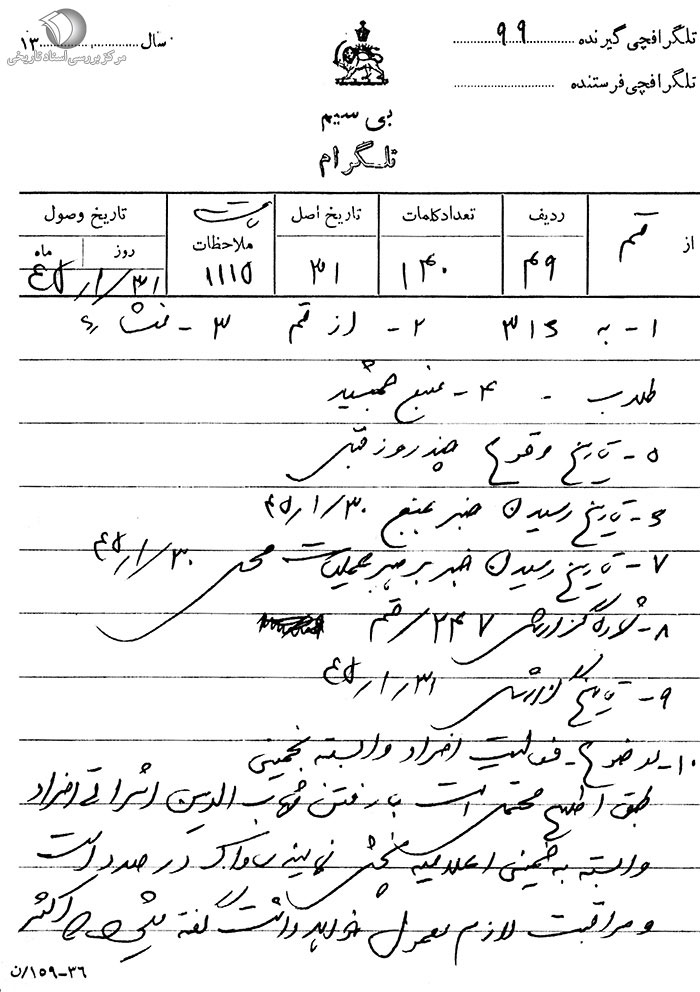 تلگرافچی گیرنده ۹۹
سال ۱۳
مرکز بررسی اسناد تاریخی
تلگرافچی فرستنده
بی سیم
تلگرام
از قم
ردیف ۴۹
تعداد کلمات ۱۴۰
تاریخ اصل ۳۱
ملاحظات ۱۱۱۵
تاریخ وصول
روز ماه
۴۵/۱/۳۱
۱- به ۳۱۶ ۲- از قم ۳- منشاء
۴- منبع جمشید
۵- تاریخ وقوع چند روز قبل
۶- تاریخ رسیدن خبر بمنبع ۴۵/۱/۳۰
۷- تاریخ رسیدن خبر برهبر عملیات محل ۴۵/۱/۳۰
۸- شماره گزارش ۲۴۷/قم
۹- تاریخ گزارش ۴۵/۱/۳۱
۱۰- موضوع - فعالیت افراد وابسته بخمینی
طبق اطلاع محتمل است با رفتن شهاب الدین اشراقی افراد
وابسته به خمینی اعلامیه پخش نمایند ساواک در صدد است
و مراقبت لازم معمول خواهد داشت گفته میشود اکثر
۳۶-۱۵۹/ن